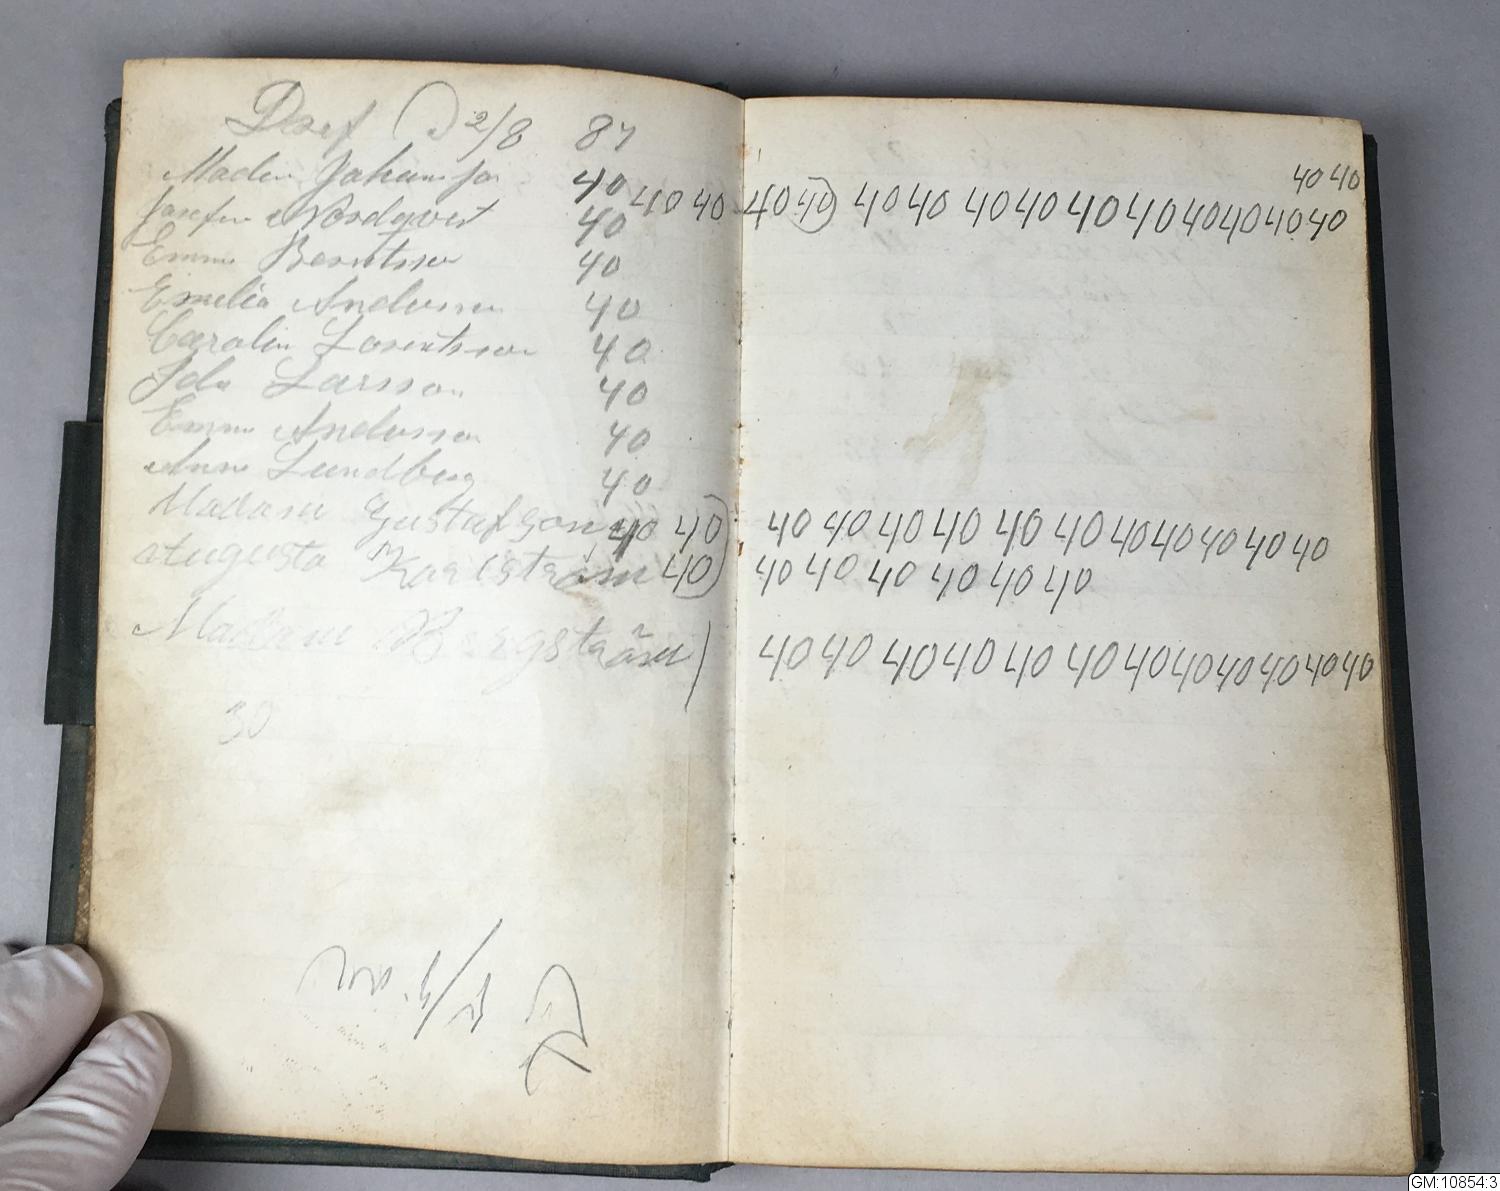 2/8 87
Johansson 40 40 40
Josefin Nordqvist 40 40 40 40 40 40 40 40 40 40 40 40 40 40 40
Emma Berntsson 40
Emelia Andersson 40
Carolin Lorentsson 40
Ida Larsson 40
Emma Andersson 40
Anna Lundberg 40
Madam Gustafson 40 40) 40 40 40 40 40 40 40 40 40 40 40
Augusta Karlström 40) 40 40 40 40 40 40
Madam Bergström) 40 40 40 40 40 40 40 40 40 40 40 40
30
GM:10854:3